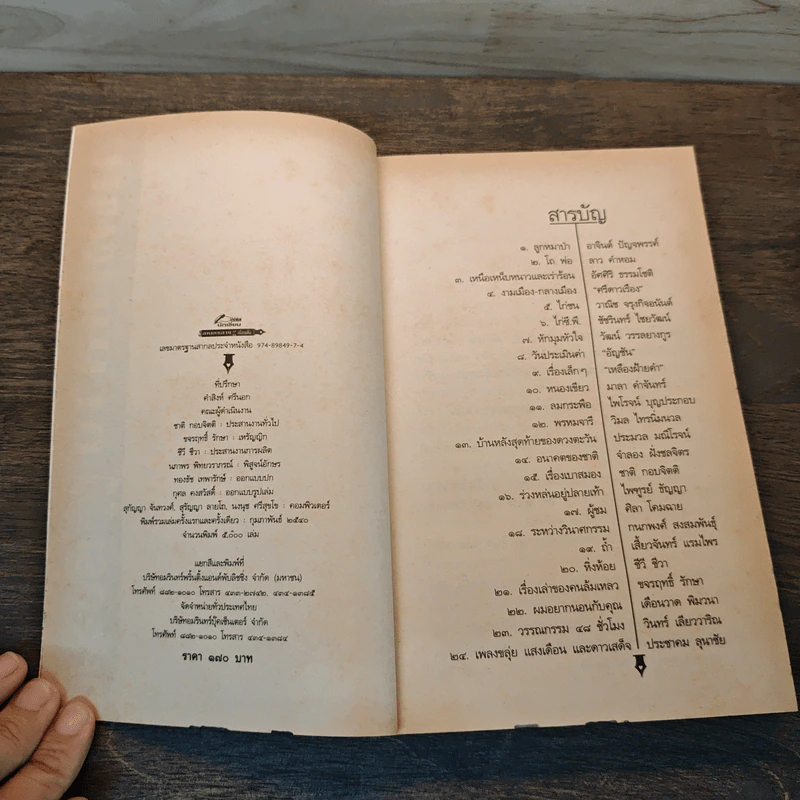 นักเขียน
เลขมาตรฐานสากลประจำหนังสือ 974-89849-7-4
ที่ปรึกษา
คำสิงห์ ศรีนอก
คณะผู้ดำเนินงาน
ชาติ กอบจิตติ : ประสานงานทั่วไป
ขจรฤทธิ์ รักษา : เหรัญญิก
ชีวี ชีวา : ประสานงานการผลิต
นภาพร พิทยวราภรณ์ : พิสูจน์อักษร
ทองธัช เทพารักษ์ : ออกแบบปก
กุศล คงสวัสดิ์ : ออกแบบรูปเล่ม
สุกัญญา จันทวงศ์, สุรัญญา ลายโถ, นงนุช ศรีสุขโข : คอมพิวเตอร์
พิมพ์รวมเล่มครั้งแรกและครั้งเดียว : กุมภาพันธ์ ๒๕๔๐
จำนวนพิมพ์ ๕,๐๐๐ เล่ม
แยกสีและพิมพ์ที่
บริษัทอมรินทร์พริ้นติ้งแอนด์พับลิชชิ่ง จำกัด (มหาชน)
โทรศัพท์ ๘๘๒-๑๐๑๐ โทรสาร ๔๓๓-๒๗๔๒, ๔๓๔-๑๓๘๕
จัดจำหน่ายทั่วประเทศไทย
บริษัทอมรินทร์บุ๊คเซ็นเตอร์ จำกัด
โทรศัพท์ ๘๘๒-๑๐๑๐ โทรสาร ๔๓๔-๑๓๘๔
ราคา ๑๗๐ บาท
สารบัญ
๑. ลูกหมาป่า อาจินต์ ปัญจพรรค์
๒. โถ พ่อ ลาว คำหอม
๓. เหนือเหน็บหนาวและเร่าร้อน อัศศิริ ธรรมโชติ
๔. งามเมือง-กลางเมือง "ศรีดาวเรือง"
๕. ไก่ชน วาณิช จรุงกิจอนันต์
๖. ไก่ซี.พี. ชัชรินทร์ ไชยวัฒน์
๗. หักมุมหัวใจ วัฒน์ วรรลยางกูร
๘. วันประเมินค่า "อัญชัน"
๙. เรื่องเล็กๆ "เหลืองฝ้ายคำ"
๑๐. หนองเขียว มาลา คำจันทร์
๑๑. ลมกระพือ ไพโรจน์ บุญประกอบ
๑๒. พรหมจารี วิมล ไทรนิ่มนวล
๑๓. บ้านหลังสุดท้ายของดวงตะวัน ประมวล มณีโรจน์
๑๔. อนาคตของชาติ จำลอง ฝั่งชลจิตร
๑๕. เรื่องเบาสมอง ชาติ กอบจิตติ
๑๖. ร่วงหล่นอยู่ปลายเท้า ไพฑูรย์ ธัญญา
๑๗. ผู้ชม ศิลา โคมฉาย
๑๘. ระหว่างวินาศกรรม กนกพงศ์ สงสมพันธุ์
๑๙. ถ้ำ เสี้ยวจันทร์ แรมไพร
๒๐. หิ่งห้อย ชีวี ชีวา
๒๑. เรื่องเล่าของคนล้มเหลว ขจรฤทธิ์ รักษา
๒๒. ผมอยากนอนกับคุณ เดือนวาด พิมวนา
๒๓. วรรณกรรม ๔๘ ชั่วโมง วินทร์ เลียววาริณ
๒๔. เพลงขลุ่ย แสงเดือน และดาวเสด็จ ประชาคม ลุนาชัย